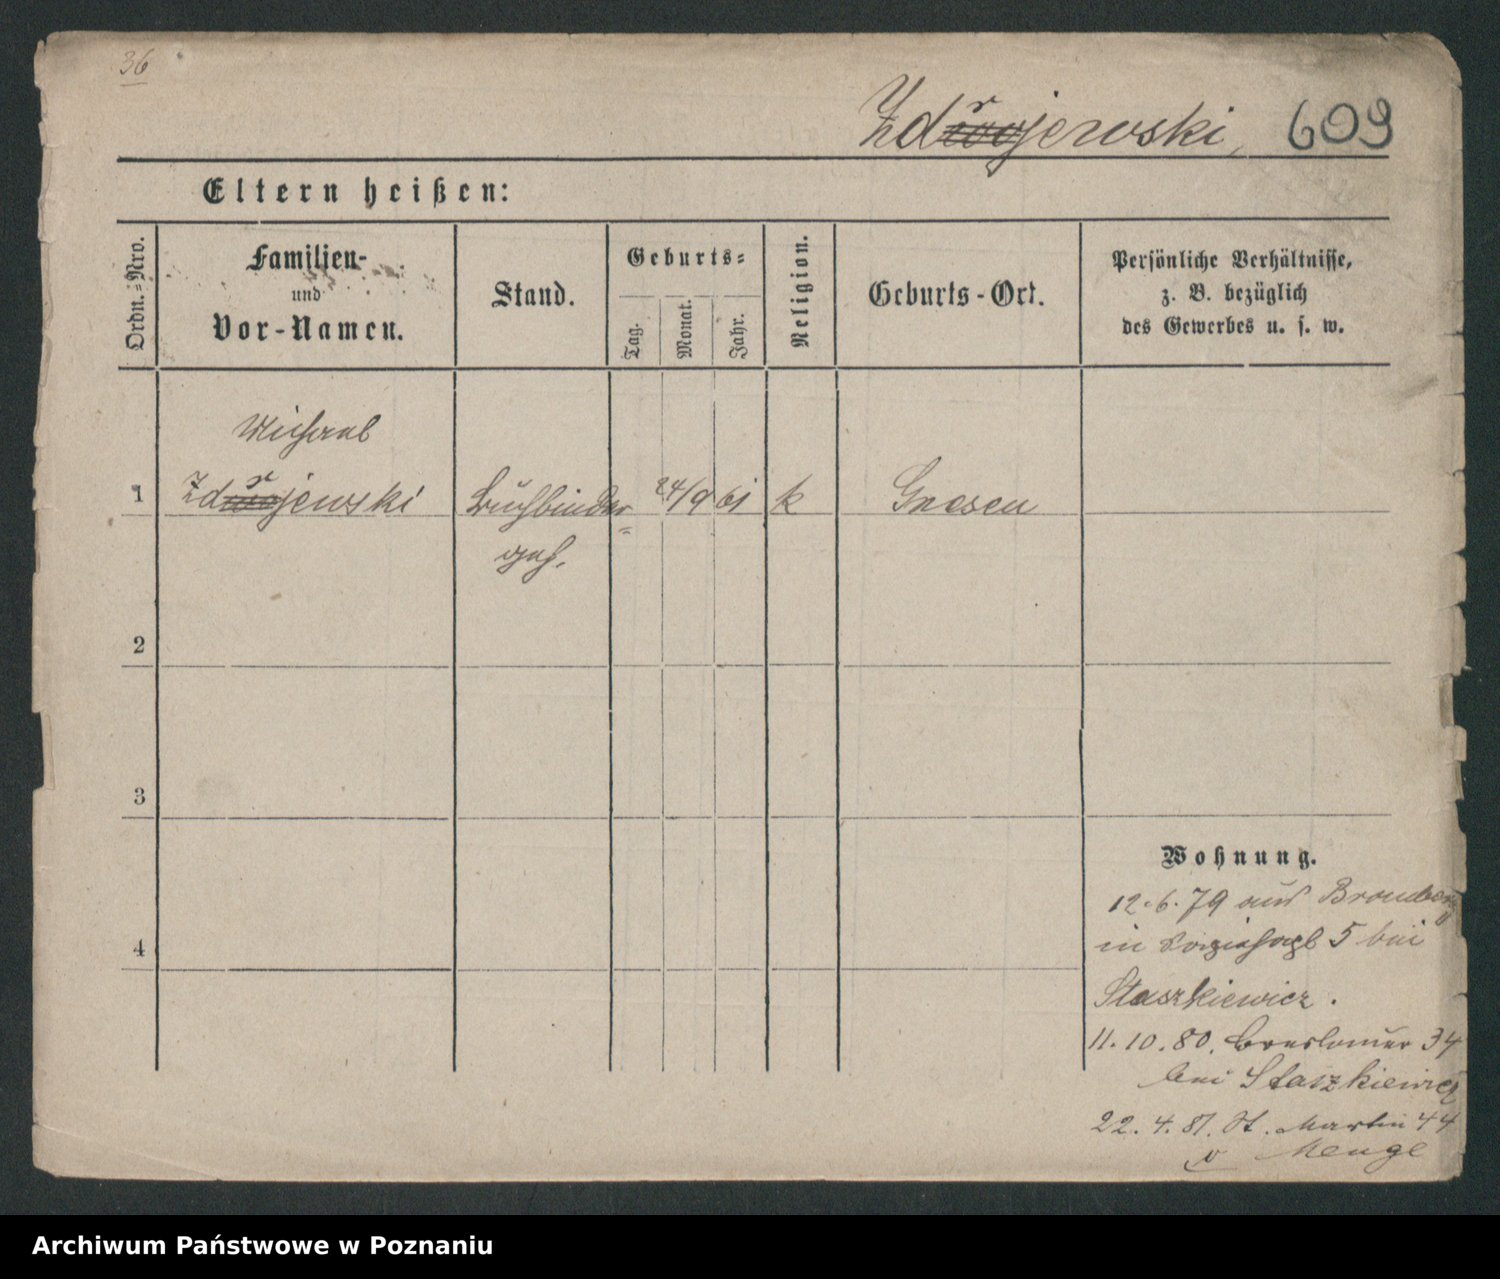 36
Zdrojewski, 609
Eltern heißen:
Ordn.-Nro.
Familien-
und
Vor-Namen.
Stand.
Geburts-
Tag.
Monat.
Jahr.
Religion.
Geburts-Ort.
Persönliche Verhältnisse,
z. B. bezüglich
des Gewerbes u. s. w.
Michael
1 Zdrojewski Buchbinder 24/9 61 k Gnesen
geh.
2
3
4
Wohnung.
12.6.79 aus Bromberg
in 5 bei
Staszkiewicz.
11.10.80. Breslauer 34
bei Staszkiewicz
22.4.81. St. Martin 44
Menge
Archiwum Państwowe w Poznaniu